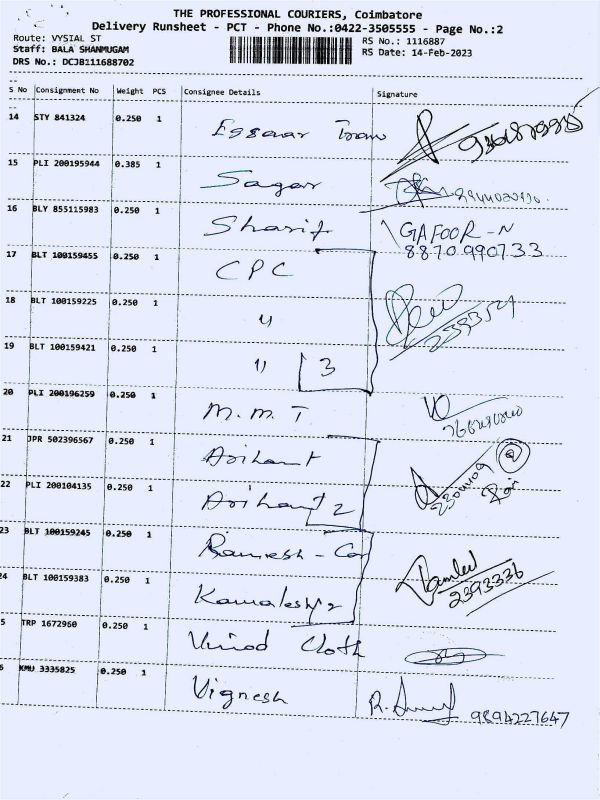 THE PROFESSIONAL COURIERS, Coimbatore
Delivery Runsheet - PCT - Phone No.:0422-3505555 - Page No.:2
Route: VYSIAL ST
Staff: BALA SHANMUGAM
DRS No.: DCJB111688702
RS No.: 1116887
RS Date: 14-Feb-2023
S No Consignment No Weight PCS Consignee Details Signature
14 STY 841324 0.250 1 Essaar Tran
15 PLI 200195944 0.385 1 Sagar
16 BLY 855115983 0.250 1 Sharif GAFOOR-N
8870990733
17 BLT 100159455 0.250 1 CPC
18 BLT 100159225 0.250 1 "
19 BLT 100159421 0.250 1 " 3
20 PLI 200196259 0.250 1 M.M.T
21 JPR 502396567 0.250 1 Arihant
22 PLI 200104135 0.250 1 Arihant 2
23 BLT 100159245 0.250 1 Ramesh - Car
24 BLT 100159383 0.250 1 Kamalesh 2 2393336
5 TRP 1672960 0.250 1 Vinod Cloth
6 KMU 3335825 0.250 1 Vignesh 9894227647